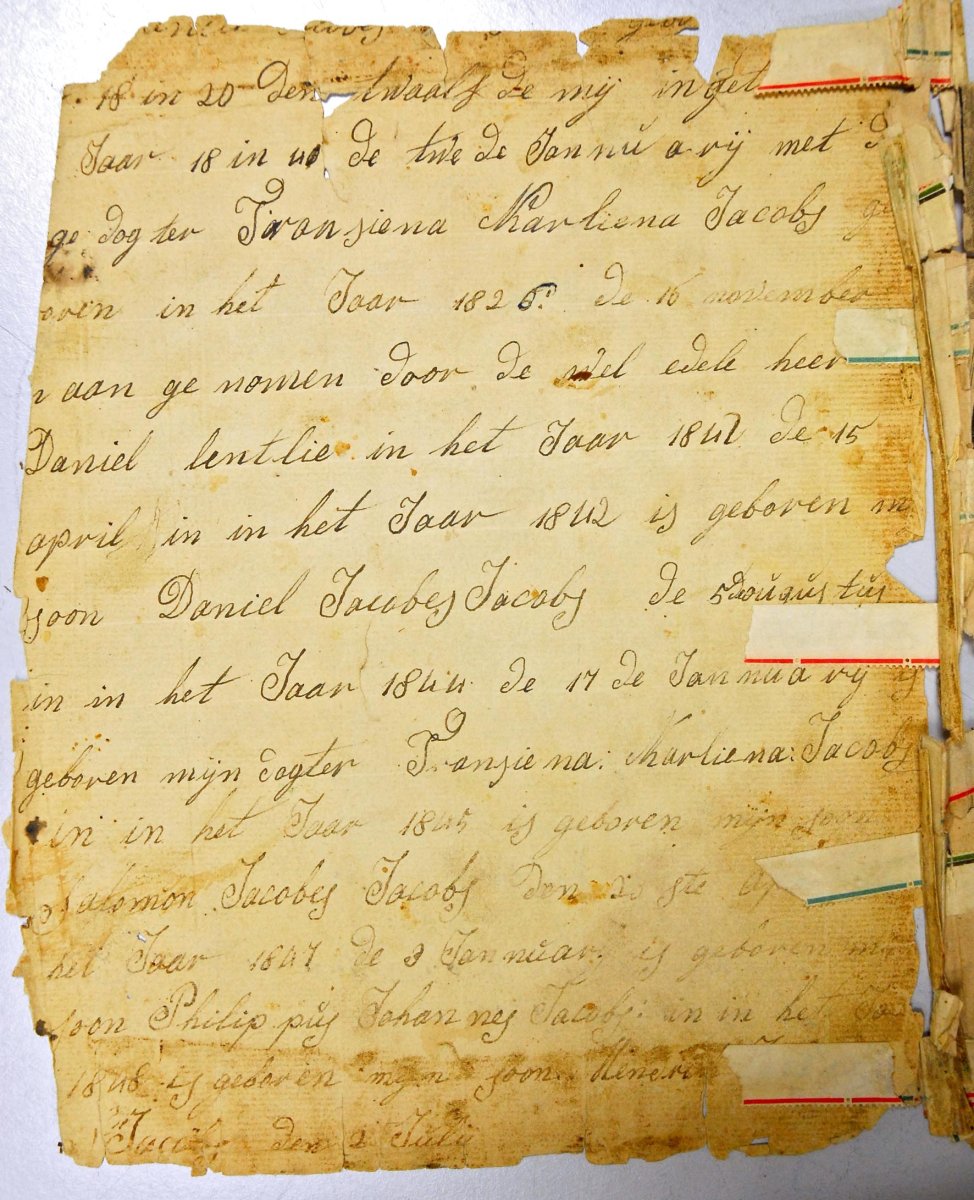 18 in 20 Den twaalf de mij in get
Jaar 18 in 40 de twe de Jannuarij met
ge dogter Fransiena Marliena Jacobs ge
oren in het Jaar 1826 de 16 november
aan ge nomen door de wel edele heer
Daniel lentlie in het Jaar 1841 de 15
april in in het Jaar 1842 is geboren m
soon Daniel Jacobes Jacobs de 5 augustus
in in het Jaar 1844 de 17 de Jannuarij is
geboren mijn dogter Fransiena: Marliena: Jacobs
in in het Jaar 1845 is geboren mijn soon
Salomon Jacobes Jacobs den 20 ste Ap
het Jaar 1847 de 3 Jannuarij is geboren m
soon Philippus Johannes Jacobs: in in het Jaa
1848 is geboren mijn soon Hendri
Jacobs den 2 Julij